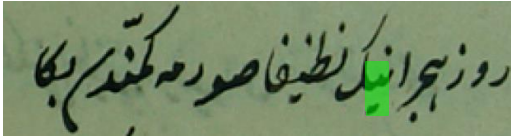 روز هجرانیک نظیفا صورمه کمّندن بکا